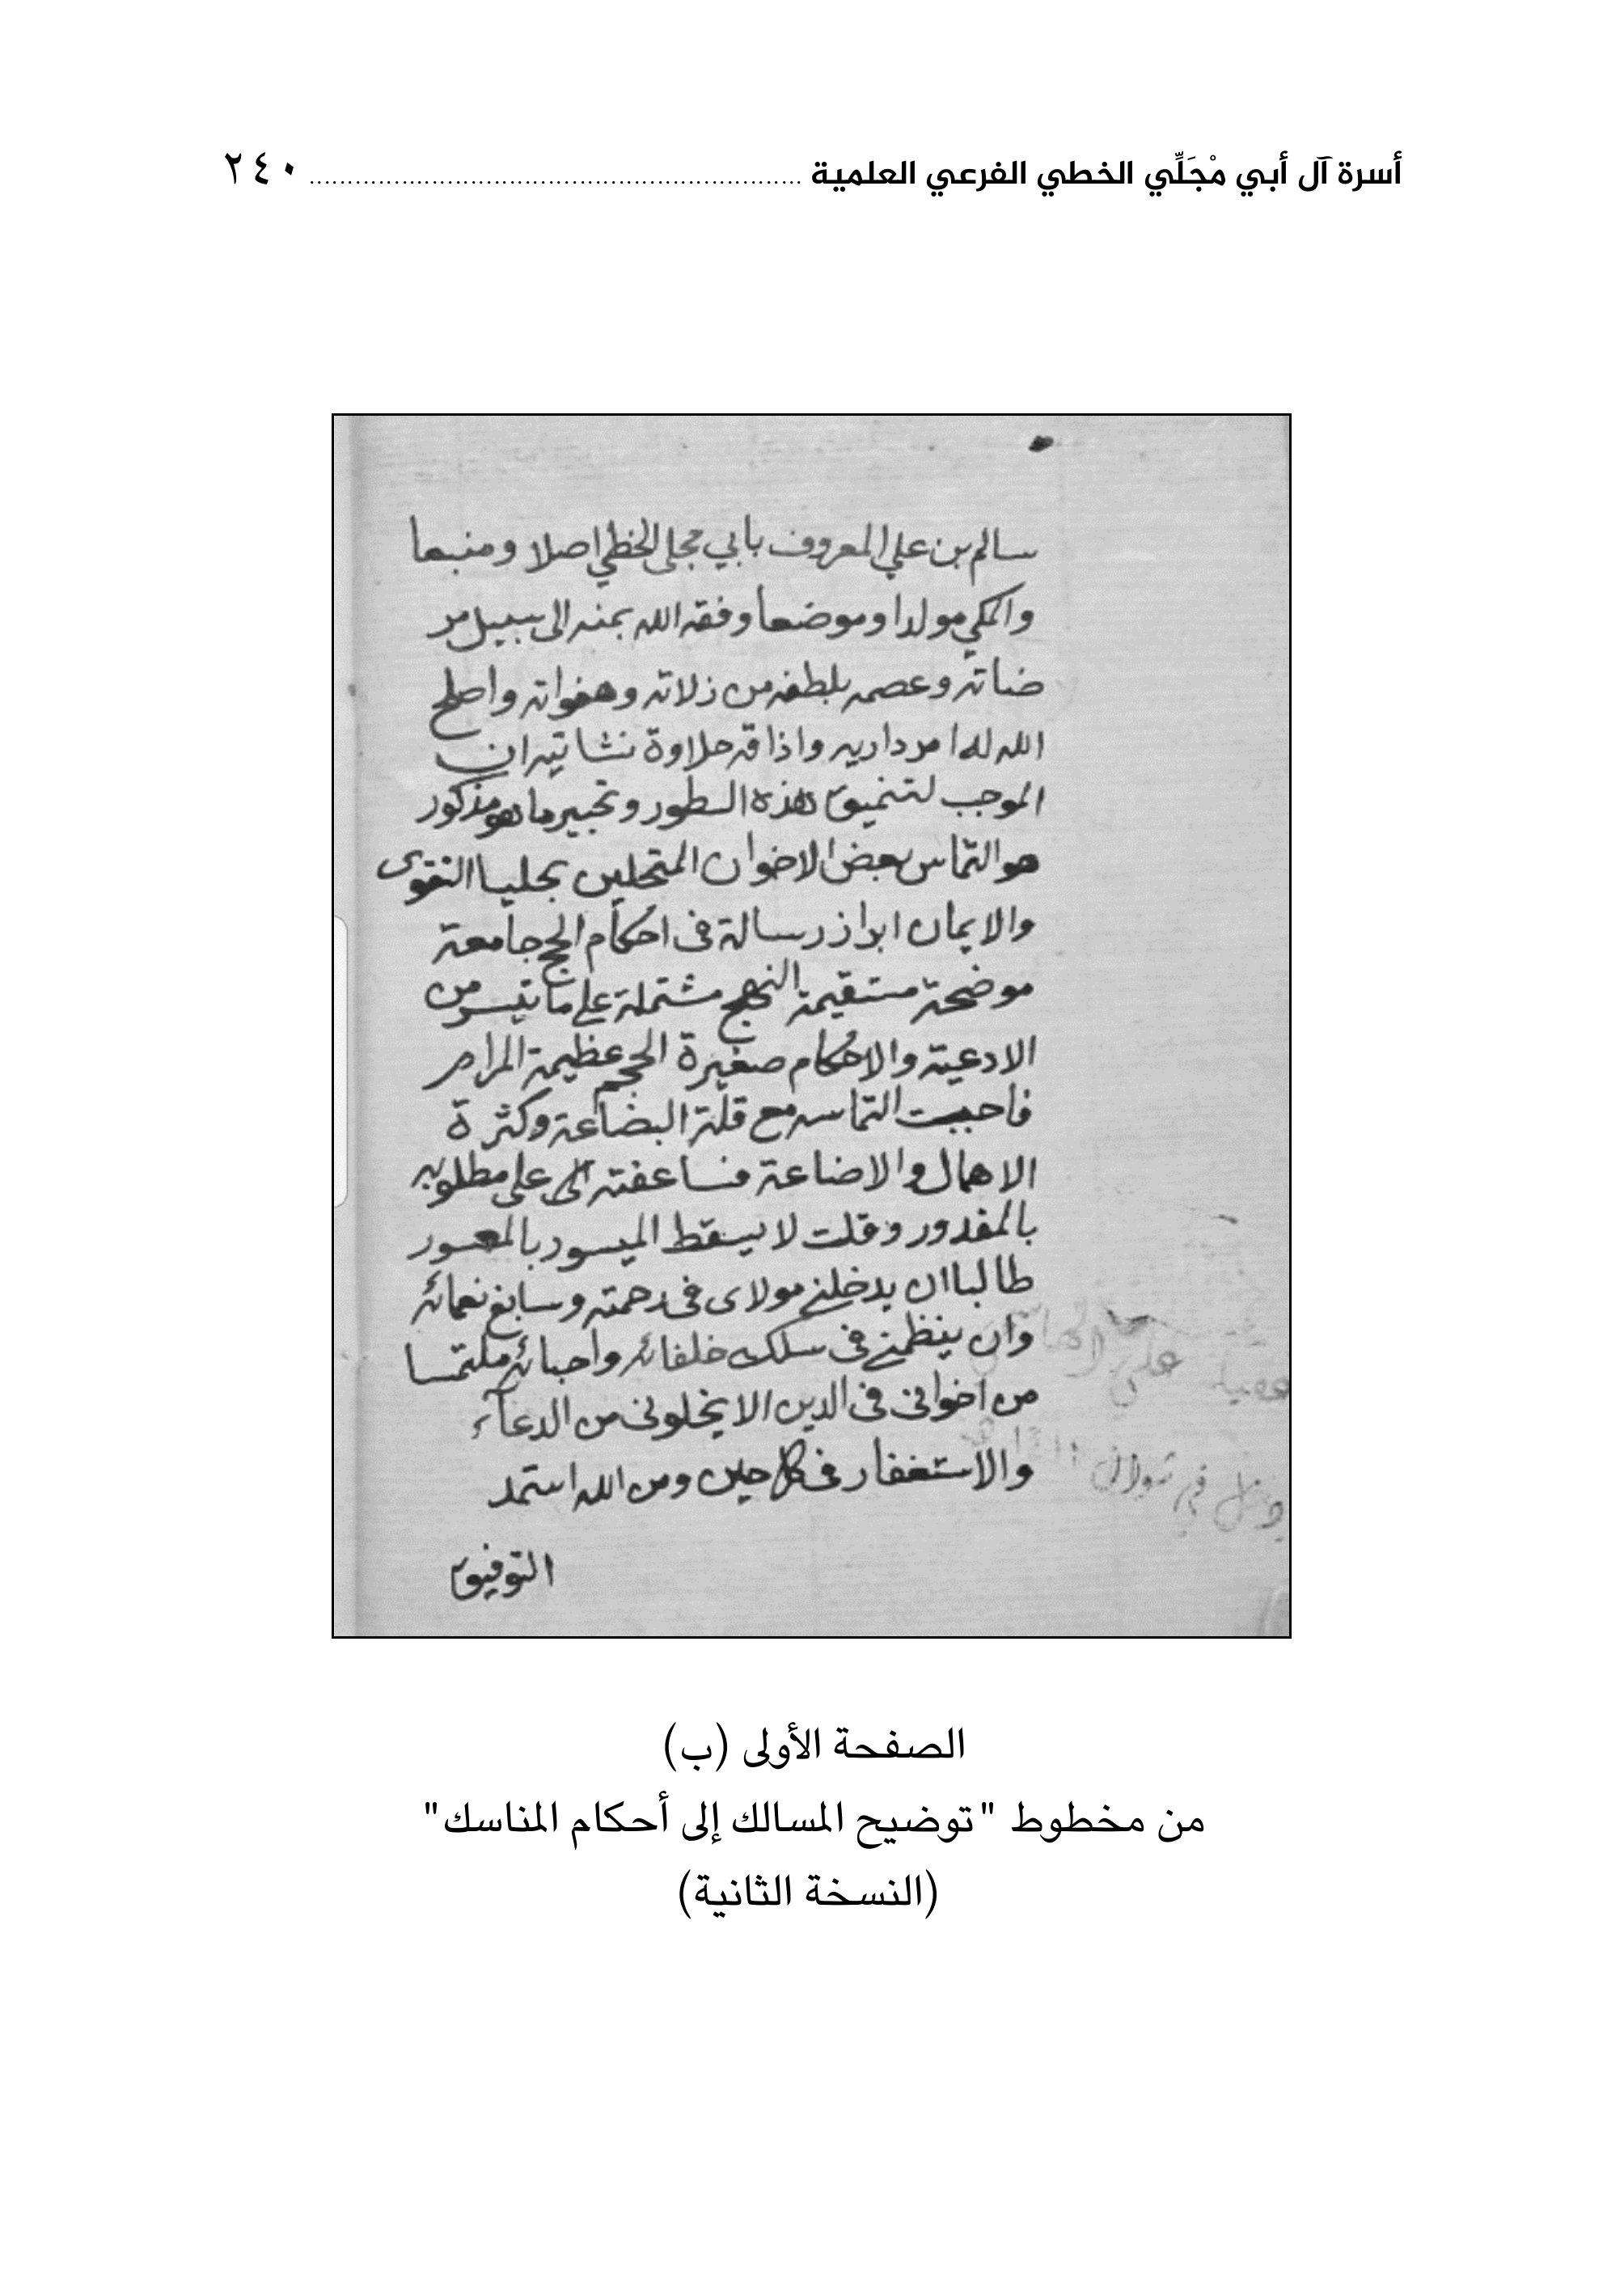 أسرة آل أبي مْجَلِّي الخطي الفرعي العلمية ........................................ ٢٤٠
سالم بن علي المعروف بابي مجلي الخطي اصلا ومنبعا
والمكي مولدا وموضعا وفقه الله بمنه الى سبيل مر
ضاته وعصمه بلطفه من زلاته وهفواته واصلح
الله له امر داريه واذاقه حلاوة نشاتيه ان
الموجب لتنميق هذه السطور وتحبير ما هو مذكور
هو التماس بعض الاخوان المتحلين بحليا التقوى
والايمان ابراز رسالة في احكام الحج جامعة
موضحة مستقيمة النهج مشتملة على ما تيسر من
الادعية والاحكام صغيرة الحجم عظيمة المرام
فاحببت التماسه مع قلة البضاعة وكثرة
الاهمال والاضاعة فساعفته على مطلوبه
بالمقدور وقلت لا يسقط الميسور بالمعسور
طالبا ان يدخلني مولاى في رحمته وسابغ نعمائه
وان ينظمني في سلك خلفائه واحبائه ملتمسا
من اخواني في الدين الا يخلوني من الدعآء
والاستغفار في كل حين ومن الله استمد
التوفيق
الصفحة الأولى (ب)
من مخطوط "توضيح المسالك إلى أحكام المناسك"
(النسخة الثانية)